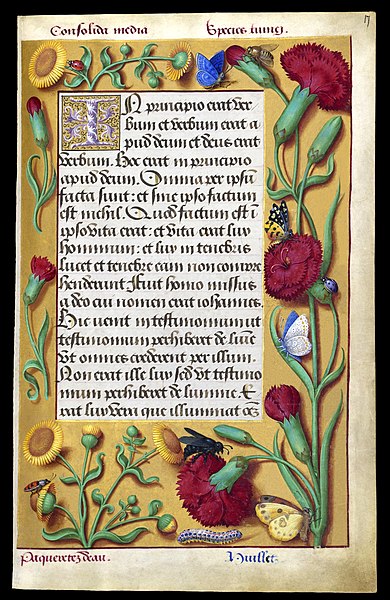 Consolida media
Species tunug.
IN principio erat ver
bum et verbum erat a
pud deum et deus erat
verbum. Hoc erat in principio
apud deum. Omnia per ipsu
facta sunt: et sine ipso factum
est nichil. Quod factum est i
ipso vita erat: et vita erat lux
hominum: et lux in tenebris
lucet et tenebre eam non compre
henderunt. Fuit homo missus
a deo cui nomen erat iohannes.
Hic venit in testimonium ut
testimonium perhiberet de lumi
ut omnes crederent per illum.
Non erat ille lux sed ut testimo
nium perhiberet de lumine. E
rat lux vera que illuminat oe
Pasqueretezdeau.
Huillet.